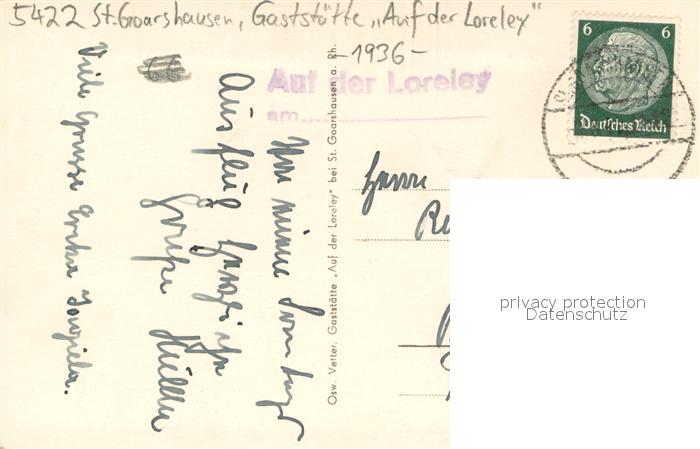 5422 St. Goarshausen, Gaststätte „Auf der Loreley"
-1936-
Auf der Loreley
am
6 6
Deutsches Reich
Osw. Vetter, Gaststätte „Auf der Loreley" bei St. Goarshausen a. Rh.
Von meinem Sonntags
Ausflug herzliche
Grüße
Viele Grüsse
Herrn
privacy protection
Datenschutz